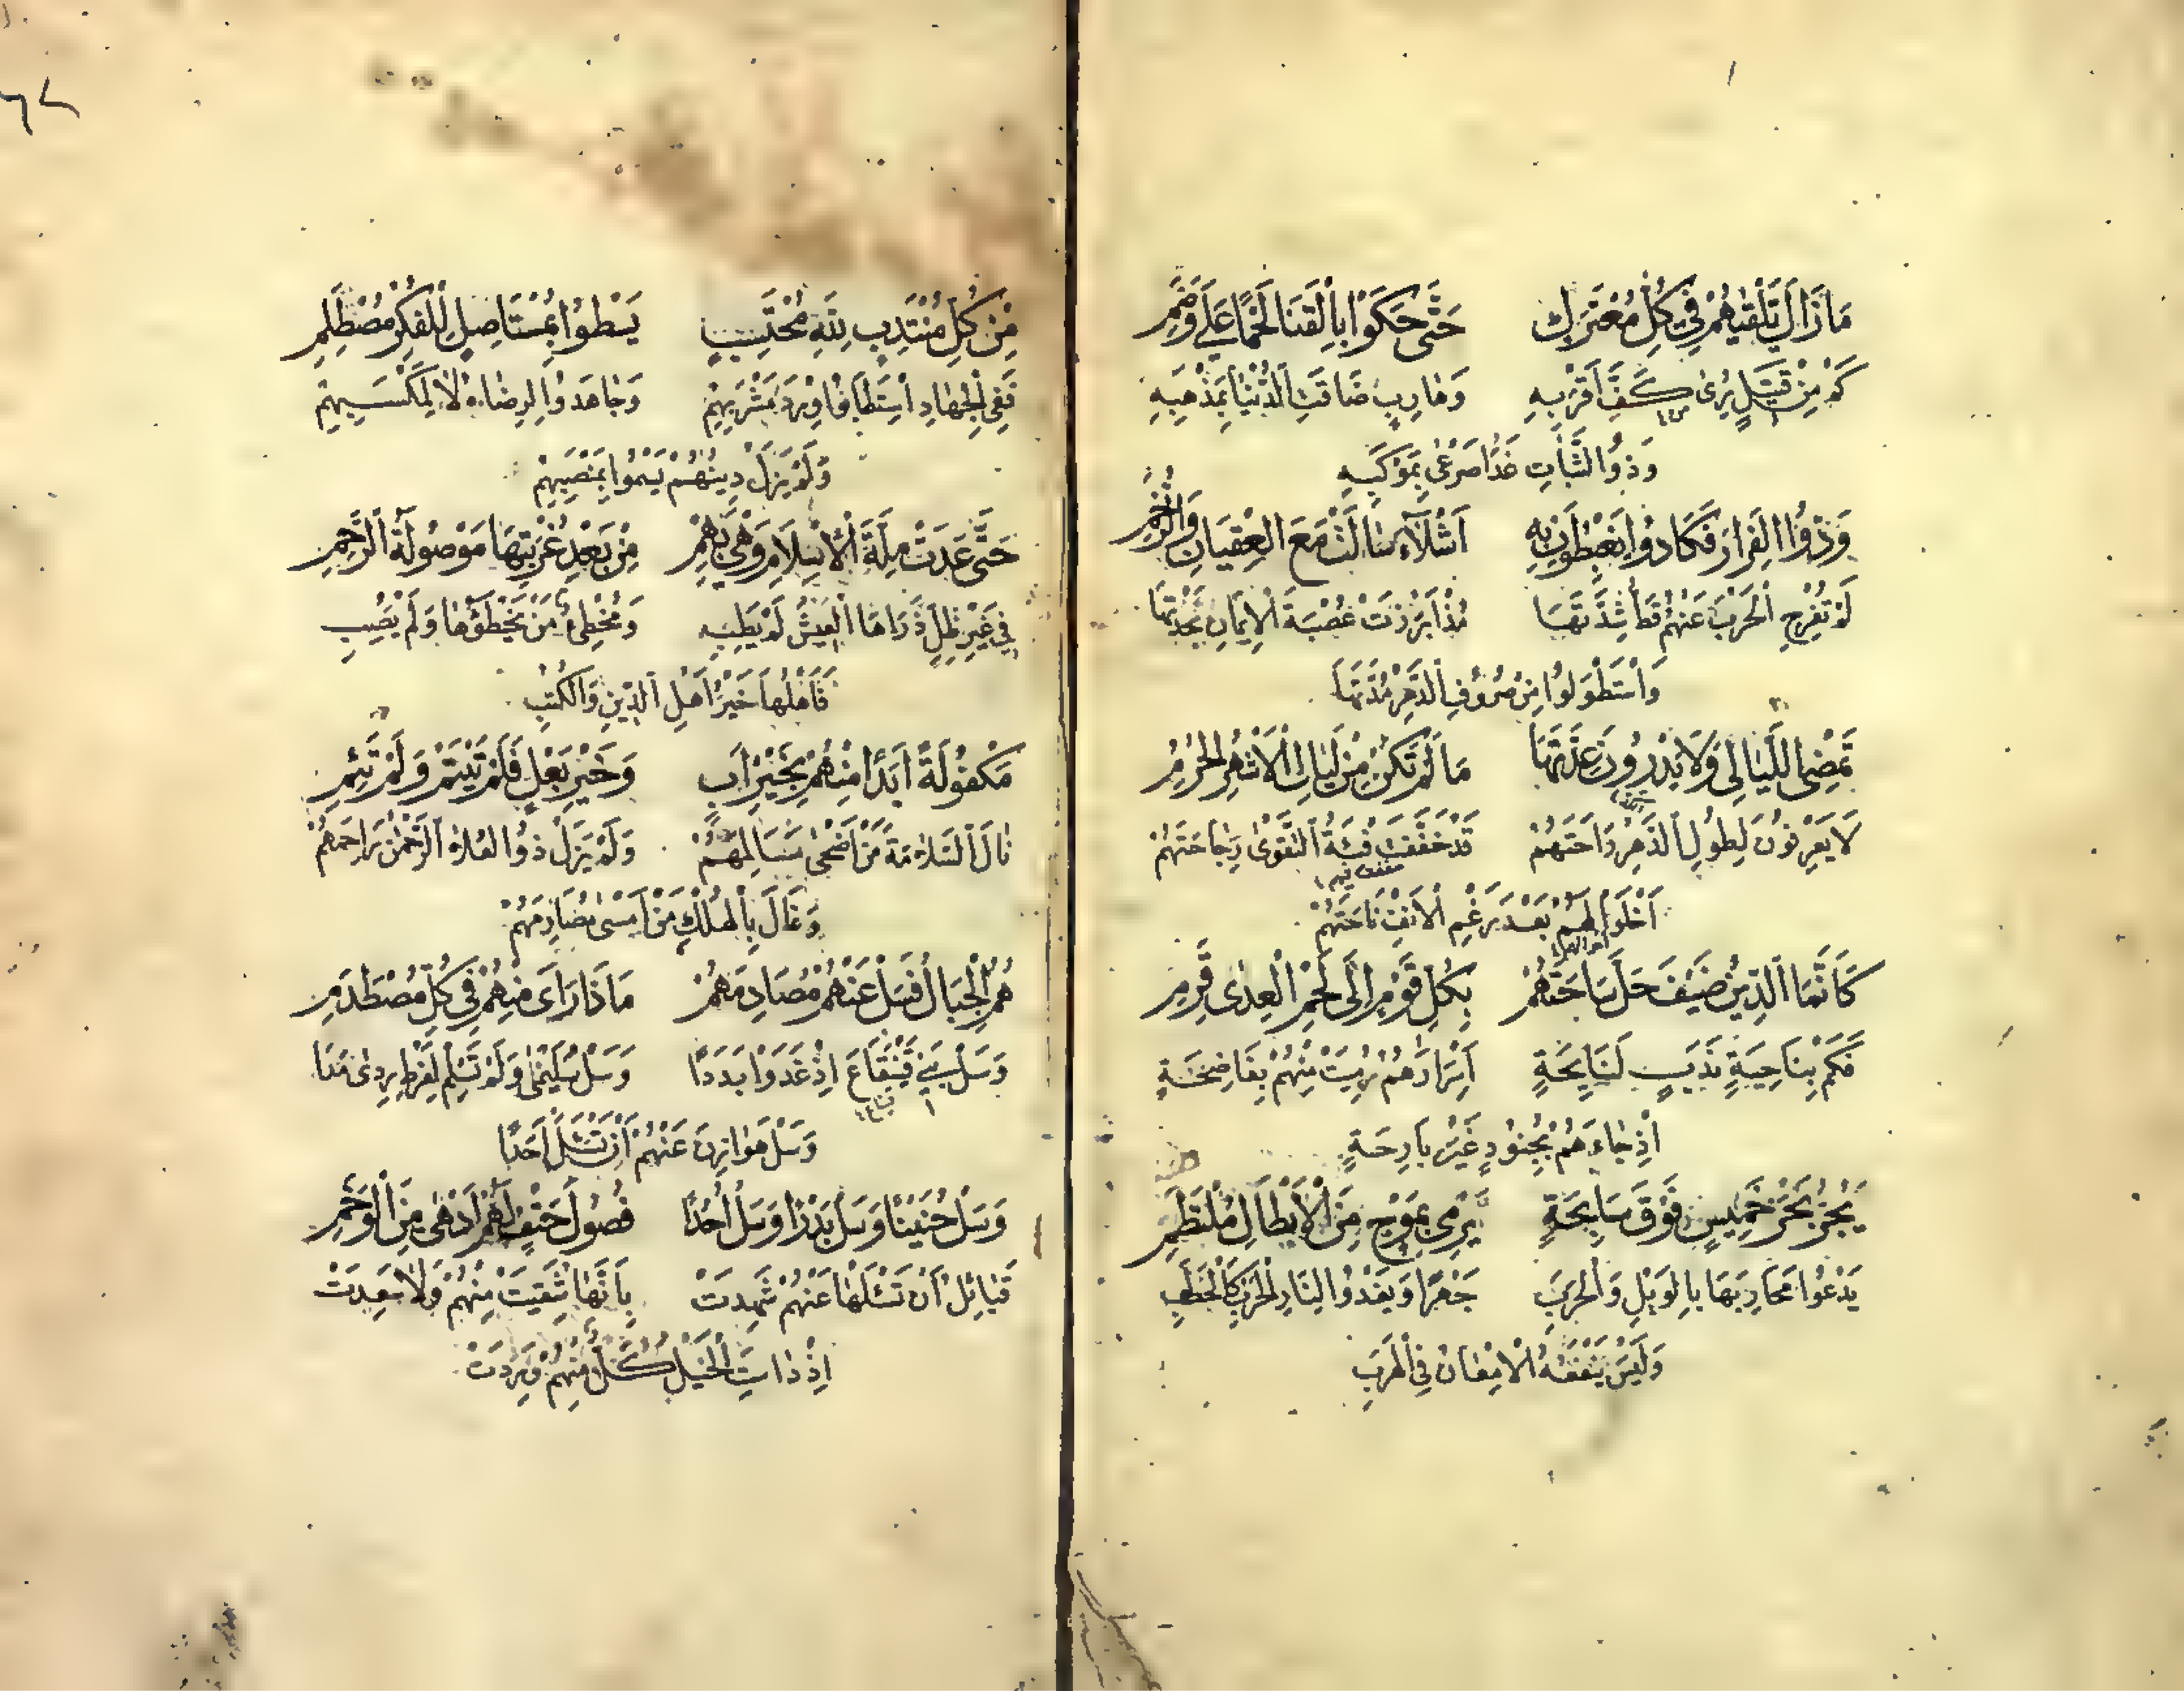 مَا زَالَ تَلْقِيهِمُ فِي كُلِّ مُعْتَرَكٍ حَتَّى حَكَوْا بِالْقَنَا لَحْمًا عَلَى وَضَمِ
كَمْ مِنْ قَتِيلٍ يُرَى كَفَّ أَقْرَبِهِ وَهَارِبٍ ضَاقَتِ الدُّنْيَا بِمَذْهَبِهِ
وَذُو الثَّبَاتِ غَدَا صَرْعَى بِمَوْكَبِهِ
وَدُّوا الْفِرَارَ فَكَادُوا يَغْبِطُونَ بِهِ أَشْلَاءَ شَالَتْ مَعَ العِقْبَانِ وَالرَّخَمِ
لَمْ تُفْرِجِ الْحَرْبُ عَنْهُمْ قَطُّ شِدَّتَهَا مُذْ أَبْرَزَتْ عُصْبَةُ الْإِيمَانِ نَجْدَتَهَا
وَاسْتَطْوَلُوا مِنْ صُرُوفِ الدَّهْرِ مُدَّتَهَا
تَمْضِي اللَّيَالِي وَلَا يَدْرُونَ عِدَّتَهَا مَا لَمْ تَكُنْ مِنْ لَيَالِ الْأَشْهُرِ الْحُرُمِ
لَا يَعْرِفُونَ لِطُولِ الدَّهْرِ رَاحَتَهُمْ قَدْ خَفَّفَتْ فِئَةُ التَّقْوَى رَجَاحَتَهُمْ
أَخْلَوْا لَهُمْ بَعْدَ رَغْمِ الْأَنْفِ نَاحَتَهُمْ
كَأَنَّمَا الدِّينُ ضَيْفٌ حَلَّ سَاحَتَهُمْ بِكُلِّ قَوْمٍ إِلَى لَحْمِ الْعِدَى قَرِمِ
فَكَمْ بِنَاحِيَةٍ نَدْبٍ لَنَايِحَةٍ أَسْرَارُهُمْ رُمِيَتْ مِنْهُمْ بِفَاضِحَةٍ
إِذْ جَاءَهُمْ بِجُنُودٍ غَيْرِ بَارِحَةٍ
يَجُرُّ بَحْرَ خَمِيسٍ فَوْقَ سَابِحَةٍ يَرْمِي بِمَوْجٍ مِنَ الْأَبْطَالِ مُلْتَطِمِ
يَدْعُوا مُحَارِبَهَا بِالْوَيْلِ وَالْحَرَبِ جَهْرًا وَيَغْدُوا لِنَارِ الْحَرْبِ كَالْحَطَبِ
وَلَيْسَ يَنْفَعُهُ الْإِمْعَانُ فِي الْهَرَبِ
مِنْ كُلِّ مُنْتَدِبٍ لِلَّهِ مُحْتَسِبٍ يَسْطُوا بِمُسْتَأْصِلٍ لِلْكُفْرِ مُصْطَلِمِ
فَفِي الْجِهَادِ اسْتَطَافُوا وِرْدَ مَشْرَبِهِمْ وَجَاهَدُوا لِرِضَاهُ لَا لِمَكْسَبِهِمْ
وَلَمْ يَزَلْ دِينُهُمْ يَسْمُوا بِمَنْصِبِهِمْ
حَتَّى غَدَتْ مِلَّةُ الْإِسْلَامِ وَهْيَ بِهِمْ مِنْ بَعْدِ غُرْبَتِهَا مَوْصُولَةَ الرَّحِمِ
فِي غَيْرِ ظِلِّ ذَرَاهَا الْعَيْشُ لَمْ يَطِبِ وَمُخْطِئٌ مَنْ يُخَطِّؤُهَا وَلَمْ يُصِبِ
فَأَهْلُهَا خَيْرُ أَهْلِ الدِّينِ وَالْكُتُبِ
مَكْفُولَةً أَبَدًا مِنْهُمْ بِخَيْرِ أَبٍ وَخَيْرِ بَعْلٍ فَلَمْ تَيْتَمْ وَلَمْ تَئِمِ
نَالَ السَّلَامَةَ مَنْ أَضْحَى يُسَالِمُهُمْ وَلَمْ يَزَلْ ذُو الْعُلَا الرَّحْمَنُ رَاحِمَهُمْ
وَغَالَ بِالْهُلْكِ مَنْ أَمْسَى يُصَادِمُهُمْ
هُمُ الْجِبَالُ فَسَلْ عَنْهُمْ مُصَادِمَهُمْ مَاذَا رَأَى مِنْهُمُ فِي كُلِّ مُصْطَدَمِ
وَسَلْ بَنِي قَيْنُقَاعَ إِذْ غَدَوْا بَدَدًا وَسَلْ سُلَيْمًا وَلَمْ تَسْلَمْ لِفَرْطِ رِدَى
وَسَلْ هَوَازِنَ عَنْهُمْ إِنْ تَسَلْ أَحَدًا
وَسَلْ حُنَيْنًا وَسَلْ بَدْرًا وَسَلْ أُحُدًا فُصُولَ حَتْفٍ لَهُمْ أَدْهَى مِنَ الْوَخَمِ
قَبَائِلٌ أَنْ تَسَلْهَا عَنْهُمْ شَهِدَتْ بِأَنَّهَا شَقِيَتْ مِنْهُمْ وَلَا سَعِدَتْ
إِذْ ذَاتَ الْخَيْلِ كُلٌّ مِنْهُمْ وَرَدَتْ